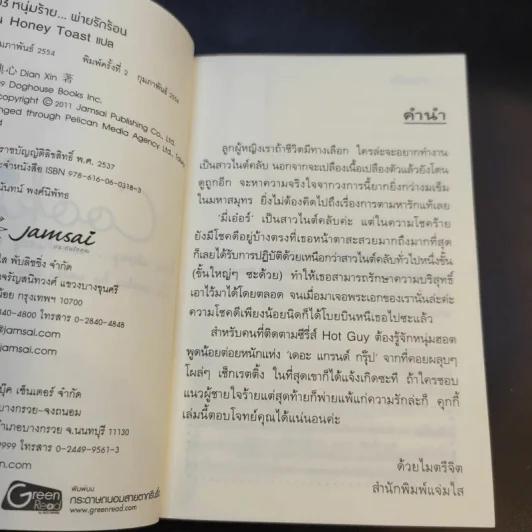 หนุ่มร้าย... พ่ายรักร้อน
Honey Toast แปล
กุมภาพันธ์ 2554
พิมพ์ครั้งที่ 2 กุมภาพันธ์ 2554
心 Dian Xin 著
Doghouse Books Inc.
copyright © 2011 Jamsai Publishing Co., Ltd.
through Pelican Media Agency Ltd., Taiwan
พ.ศ. 2537
ISBN 978-616-06-0318-3
นันทน์ พงศ์นิพัทธ
Jamsai
ใส พับลิชชิ่ง จำกัด
จรัญสนิทวงศ์ แขวงบางขุนศรี
น้อย กรุงเทพฯ 10700
0-2840-4800 โทรสาร 0-2840-4848
jamsai.com
บุ๊ค เซ็นเตอร์ จำกัด
บางกรวย-จงถนอม
อำเภอบางกรวย จ.นนทบุรี 11130
9999 โทรสาร 0-2449-9561-3
n.com
Green Read
พิมพ์บน
กระดาษถนอมสายตากรีนรี้ด
www.greenread.com
คำนำ
ลูกผู้หญิงเราถ้าชีวิตมีทางเลือก ใครล่ะจะอยากทำงาน
เป็นสาวไนต์คลับ นอกจากจะเปลืองเนื้อเปลืองตัวแล้วยังโดน
ดูถูกอีก จะหาความจริงใจจากวงการนี้ยากยิ่งกว่างมเข็ม
ในมหาสมุทร ยิ่งไม่ต้องคิดไปถึงเรื่องการตามหารักแท้เลย
'มี่เอ๋อร์' เป็นสาวไนต์คลับค่ะ แต่ในความโชคร้าย
ยังมีโชคดีอยู่บ้างตรงที่เธอหน้าตาสะสวยมากถึงมากที่สุด
ก็เลยได้รับการปฏิบัติด้วยเหนือกว่าสาวไนต์คลับทั่วไปหนึ่งขั้น
(ขั้นใหญ่ๆ ซะด้วย) ทำให้เธอสามารถรักษาความบริสุทธิ์
เอาไว้มาได้โดยตลอด จนเมื่อมาเจอพระเอกของเรานั่นล่ะค่ะ
ความโชคดีเพียงน้อยนิดก็ได้โบยบินหนีเธอไปซะแล้ว
สำหรับคนที่ติดตามซีรี่ส์ Hot Guy ต้องรู้จักหนุ่มฮอต
พูดน้อยต่อยหนักแห่ง 'เดอะ แกรนด์ กรุ๊ป' จากที่คอยผลุบๆ
โผล่ๆ เช็กเรตติ้ง ในที่สุดเขาก็ได้แจ้งเกิดซะที ถ้าใครชอบ
แนวผู้ชายใจร้ายแต่สุดท้ายก็พ่ายแพ้แก่ความรักล่ะก็ คุกกี้
เล่มนี้ตอบโจทย์คุณได้แน่นอนค่ะ
ด้วยไมตรีจิต
สำนักพิมพ์แจ่มใส